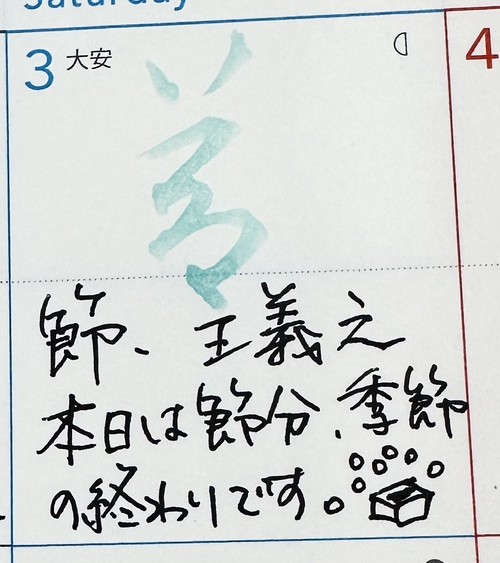 Saturday
3 大安
4
節
節、王羲之
本日は節分、季節
の終わりです。